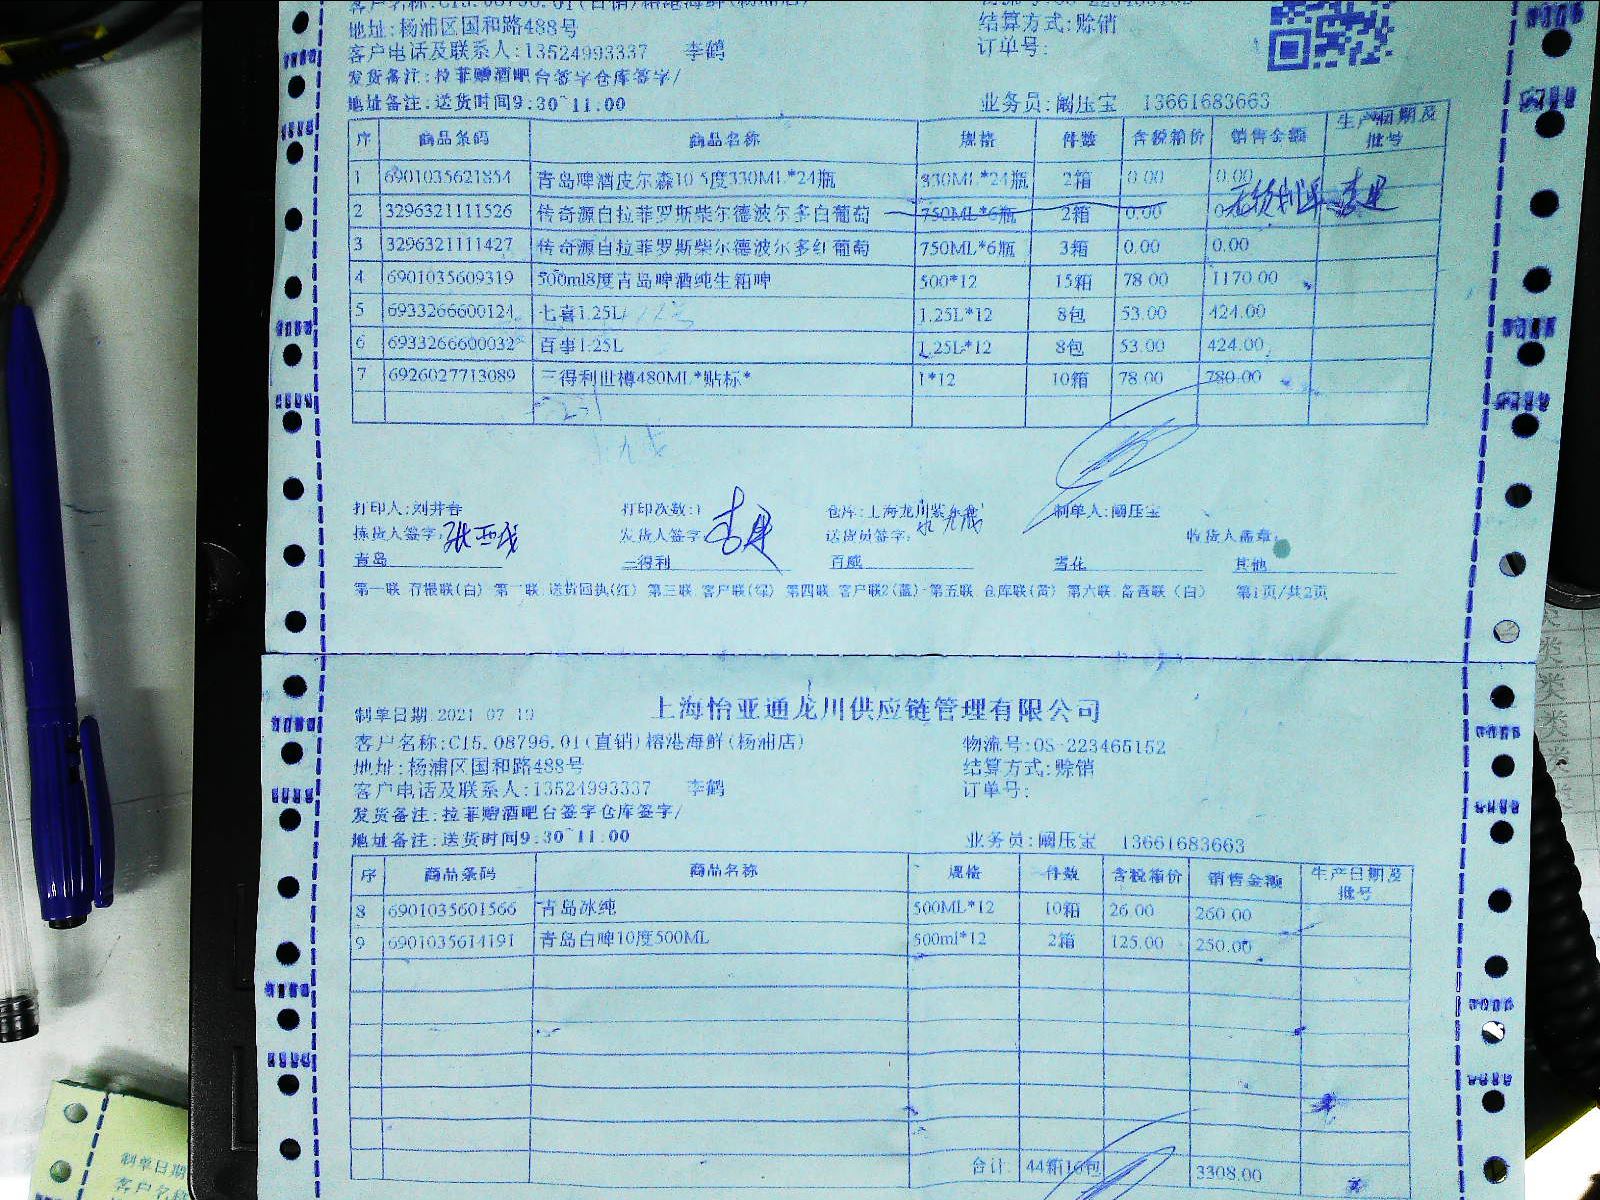 客户名称:C15.08796.01(直销)榕港海鲜(杨浦店)
地址:杨浦区国和路488号 结算方式:赊销
客户电话及联系人:13524993337 李鹤 订单号:
发货备注:拉菲赠酒吧台签字仓库签字/
地址备注:送货时间9:30~11:00 业务员:阚压宝 13661683663
序 商品条码 商品名称 规格 件数 含税箱价 销售金额 生产日期及批号
1 6901035621854 青岛啤酒皮尔森10.5度330ML*24瓶 330ML*24瓶 2箱 0.00 0.00
2 3296321111526 传奇源自拉菲罗斯柴尔德波尔多白葡萄 750ML*6瓶 2箱 0.00 无货划单 李星
3 3296321111427 传奇源自拉菲罗斯柴尔德波尔多红葡萄 750ML*6瓶 3箱 0.00 0.00
4 6901035609319 500ml8度青岛啤酒纯生箱啤 500*12 15箱 78.00 1170.00
5 6933266600124 七喜1.25L 1.25L*12 8包 53.00 424.00
6 6933266600032 百事1.25L 1.25L*12 8包 53.00 424.00
7 6926027713089 三得利世樽480ML*贴标* 1*12 10箱 78.00 780.00
打印人:刘井春 打印次数:1 仓库:上海龙川 制单人:阚压宝
拣货人签字: 发货人签字: 送货员签字: 收货人盖章:
青岛 三得利 百威 雪花 其他
第一联 存根联(白) 第二联 送货回执(红) 第三联 客户联(绿) 第四联 客户联2(蓝) 第五联 仓库联(黄) 第六联 备查联(白) 第1页/共2页
上海怡亚通龙川供应链管理有限公司
制单日期 2021-07-19
客户名称:C15.08796.01(直销)榕港海鲜(杨浦店) 物流号:OS-223465152
地址:杨浦区国和路488号 结算方式:赊销
客户电话及联系人:13524993337 李鹤 订单号:
发货备注:拉菲赠酒吧台签字仓库签字/
地址备注:送货时间9:30~11:00 业务员:阚压宝 13661683663
序 商品条码 商品名称 规格 件数 含税箱价 销售金额 生产日期及批号
8 6901035601566 青岛冰纯 500ML*12 10箱 26.00 260.00
9 6901035614191 青岛白啤10度500ML 500ml*12 2箱 125.00 250.00
合计 44箱16包 3308.00
制单日期
客户名称